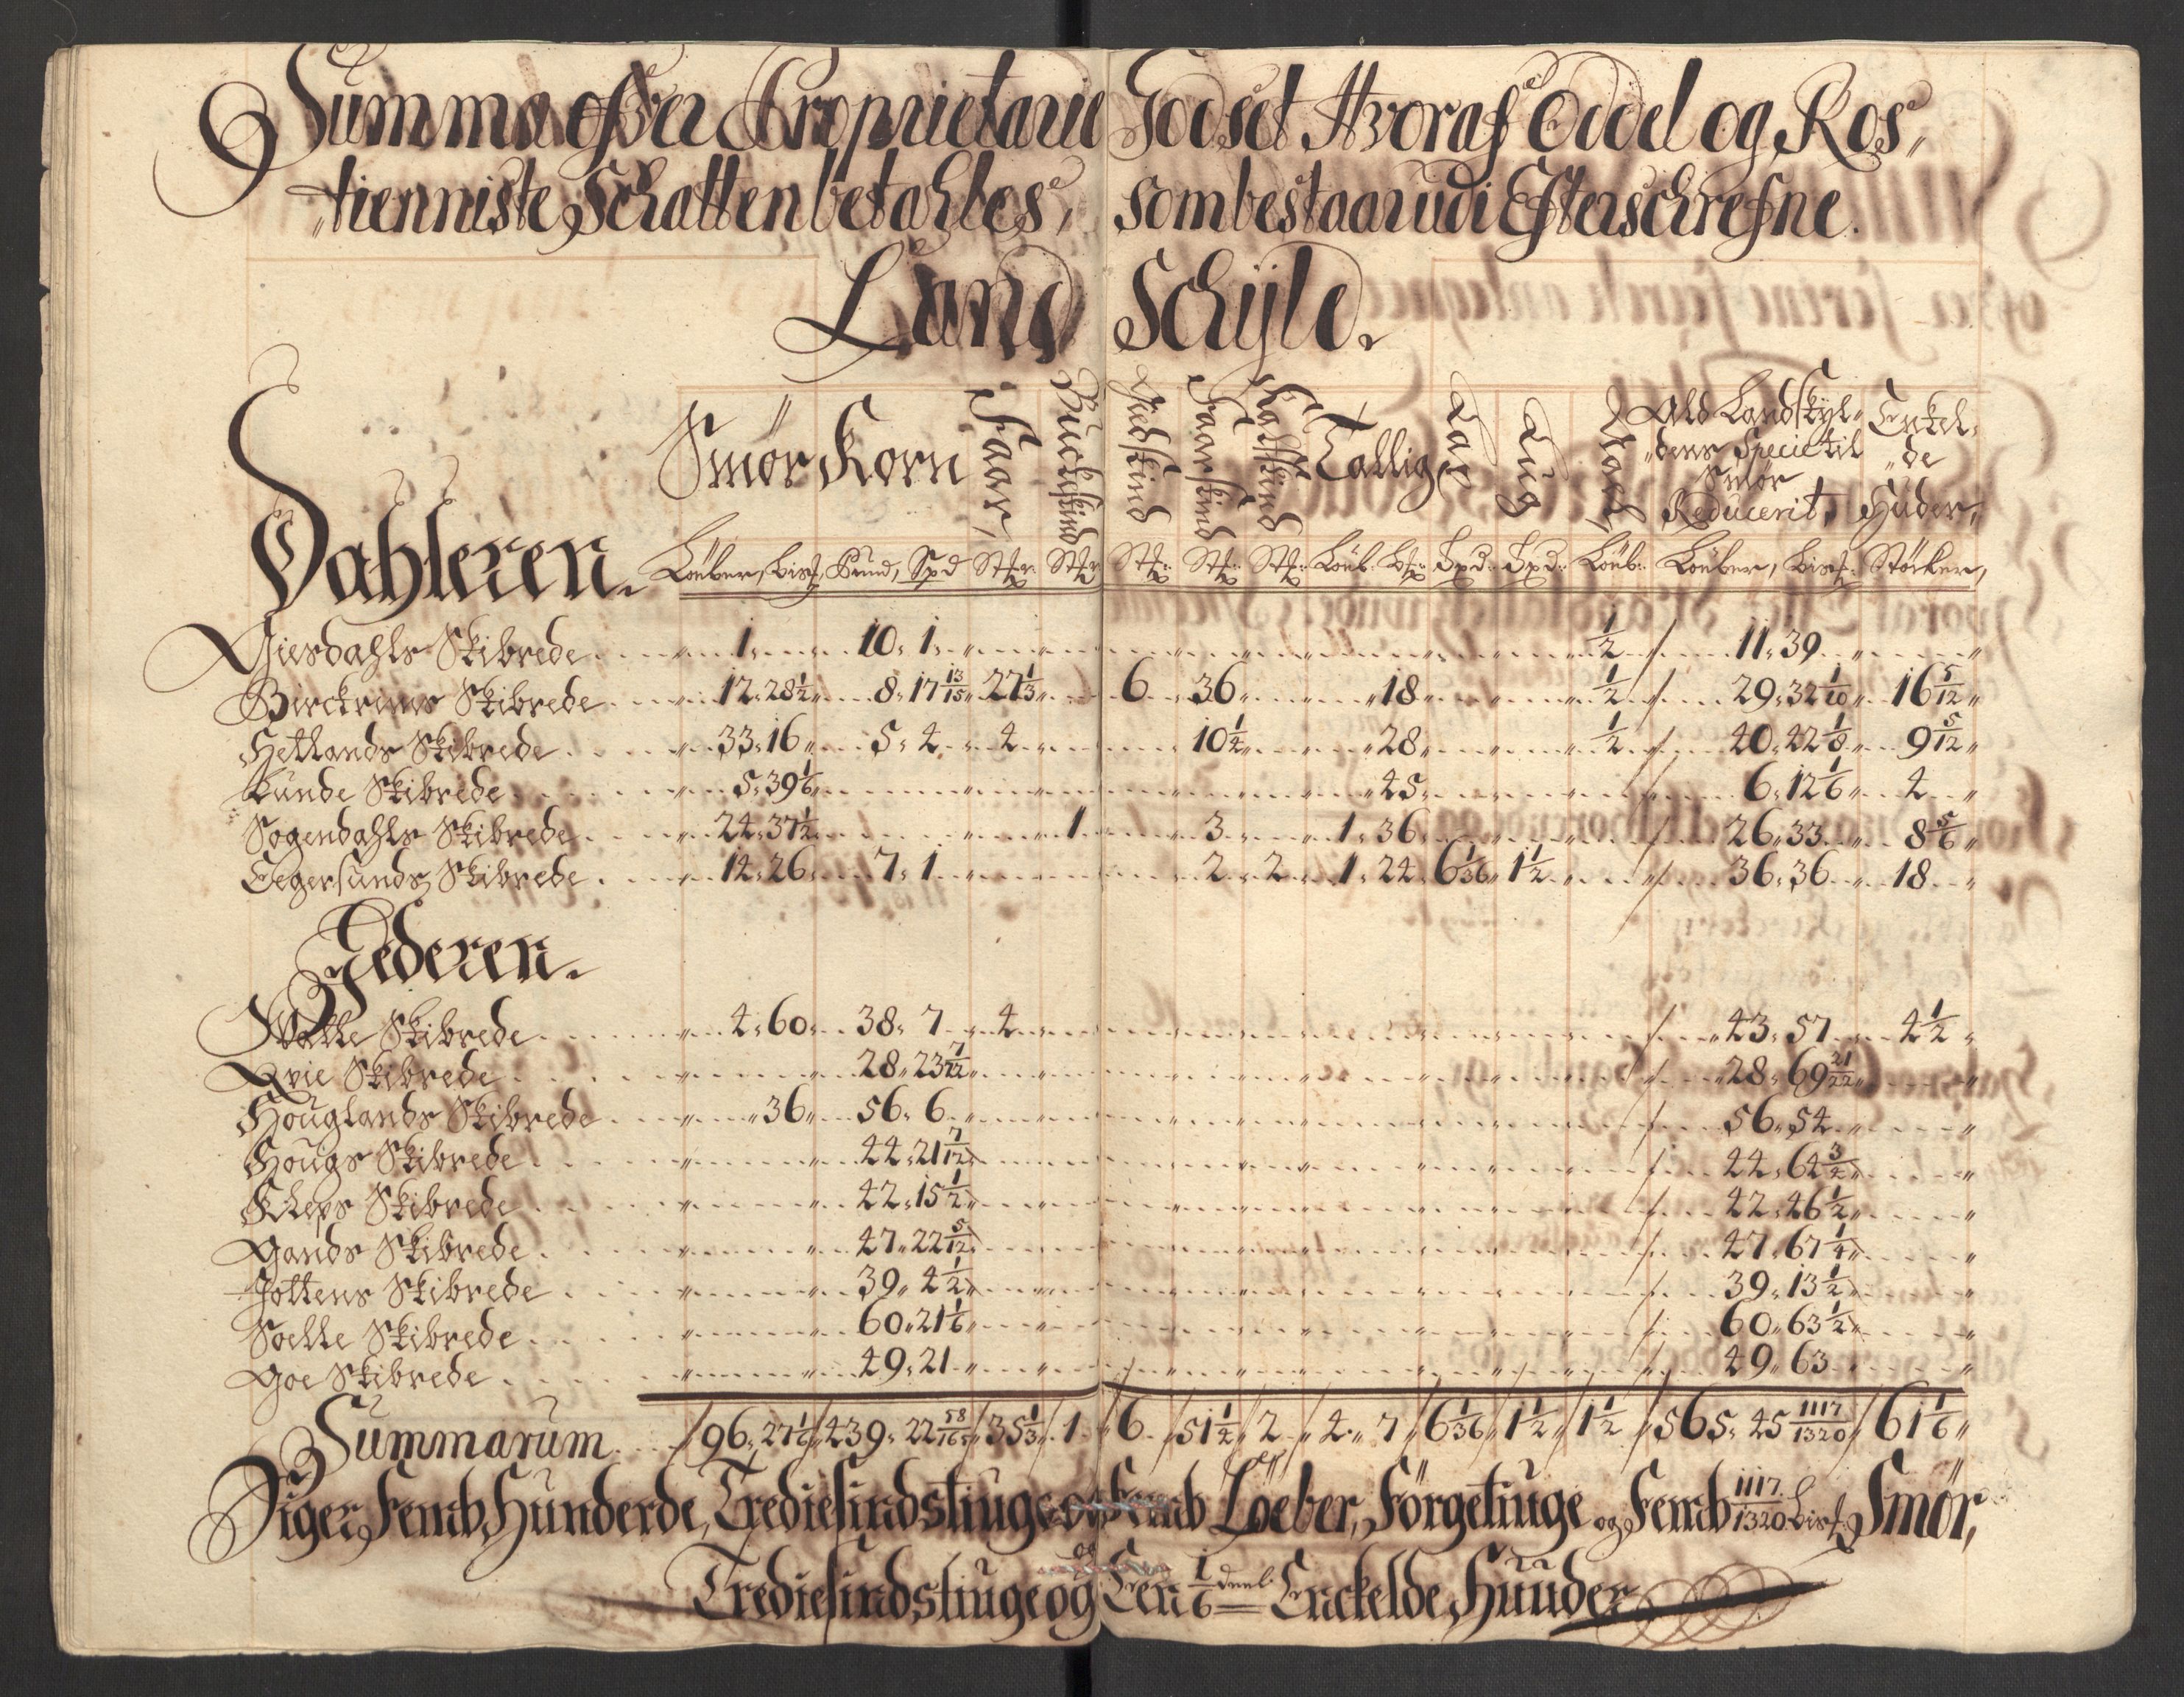 Summa ofver Proprietarie Godset Hvoraf Oddel og Ros,,
,,tienniste Schatten betahles, som bestaar udi Efterschrefne.
Land Schÿld.
Smör Korn Faar, Buckeskind Giedskind Faarskind Kalfskind Tallig Lax Ald Landskÿl,, Enkel,,
,,dens Specie til ,,de
Smör
Reducerit, Huder,,
Dahleren. Löeber, Bisf, Pund, Spd
Giesdahls Skibrede 1 10, 1 1/2 11, 39
Birckrems Skibrede 12, 28 1/2 8, 17 13/15 27 1/3 6 36 18 1/2 29, 32 1/10 16 5/12
Hetlands Skibrede 33, 16 5, 4 4 10 1/4 28 1/2 40, 22 1/8 9 5/12
Lunde Skibrede 5, 39 1/6 45 6, 12 1/6 4
Sogendahls Skibrede 24, 37 1/2 1 3 1, 36 26, 33 8 5/6
Eegersunds Skibrede 14, 26 7, 1 2 2 1, 24 6 1/36 1 1/2 36, 36 18
Jederen.
Skibrede 4, 60 38, 7 4 43, 57 4 1/2
Qvie Skibrede 28, 23 7/22 28, 69 21/22
Houglands Skibrede 36 56, 6 56, 54
Hougs Skibrede 44, 21 7/12 44, 64 3/4
Kleps Skibrede 42, 15 1/2 42, 46 1/2
Gands Skibrede 47, 22 5/12 47, 67 1/4
Jottens Skibrede 39, 4 1/2 39, 13 1/2
Soelle Skibrede 60, 21 1/6 60, 63 1/2
Goe Skibrede 49, 21 49, 63
Summarum 96, 27 1/6 439, 22 58/165 35 1/3 1 6 51 1/4 2 4, 7 6 1/36 1 1/2 1 1/2 565, 45 1117/1320 61 1/6
Siger Femb Hunderde, Trediesindstiuge og Femb Löeber, Förgetiuge og Femb 1117/1320 Bisf Smör,
og Trediesindstiuge og Een 1/6 deel Enckelde Huuder